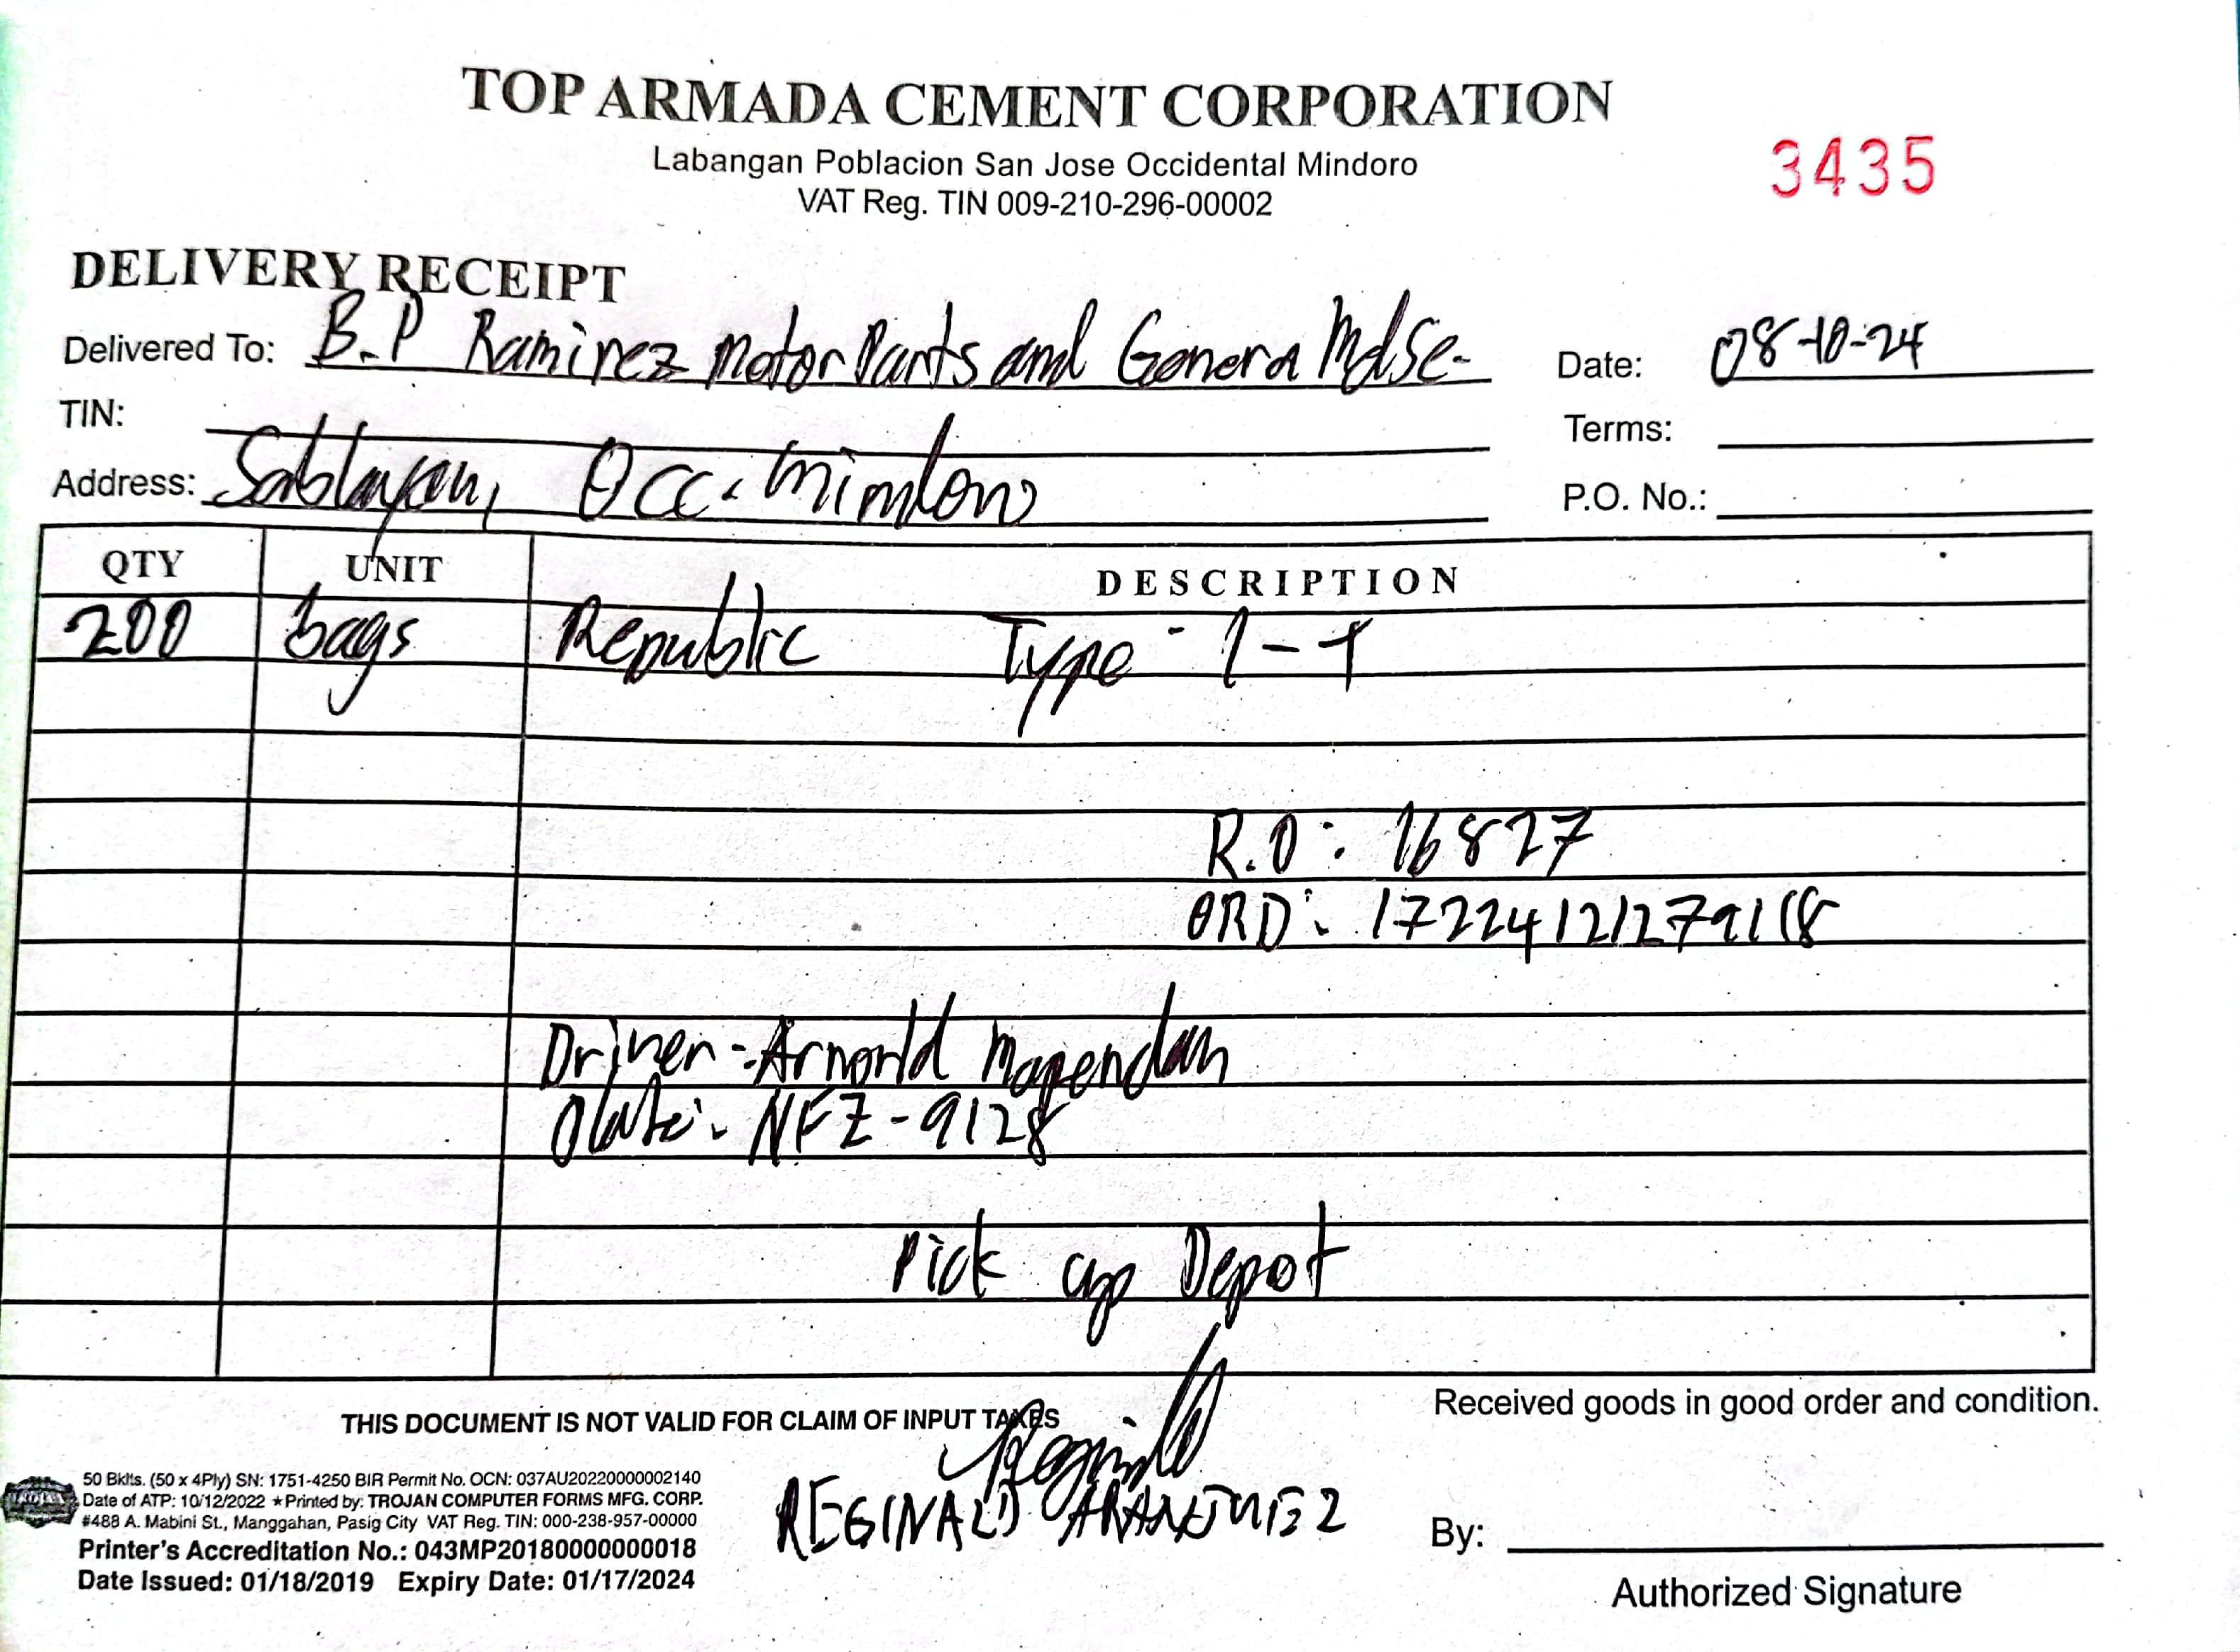 TOP ARMADA CEMENT CORPORATION
Labangan Poblacion San Jose Occidental Mindoro
VAT Reg. TIN 009-210-296-00002
3435
DELIVERY RECEIPT
Delivered To: B.P Ramirez Motor Parts and Genera Mdse.
Date: 08-10-24
TIN:
Terms:
Address: Sablayan, Occ. Mindoro
P.O. No.:
QTY UNIT DESCRIPTION
200 bags Republic Type - 1-T
R.O: 16827
ORD: 17224121279118
Driver - Arnorld Magendan
Plate: NFZ-9128
Pick up Depot
Received goods in good order and condition.
THIS DOCUMENT IS NOT VALID FOR CLAIM OF INPUT TAXES
50 Bklts. (50 x 4Ply) SN: 1751-4250 BIR Permit No. OCN: 037AU20220000002140
Date of ATP: 10/12/2022 ★Printed by: TROJAN COMPUTER FORMS MFG. CORP.
#488 A. Mabini St., Manggahan, Pasig City VAT Reg. TIN: 000-238-957-00000
Printer's Accreditation No.: 043MP20180000000018
Date Issued: 01/18/2019 Expiry Date: 01/17/2024
REGINALD ARANJUEZ
By:
Authorized Signature